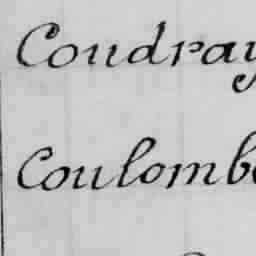 Coudray
Coulombe